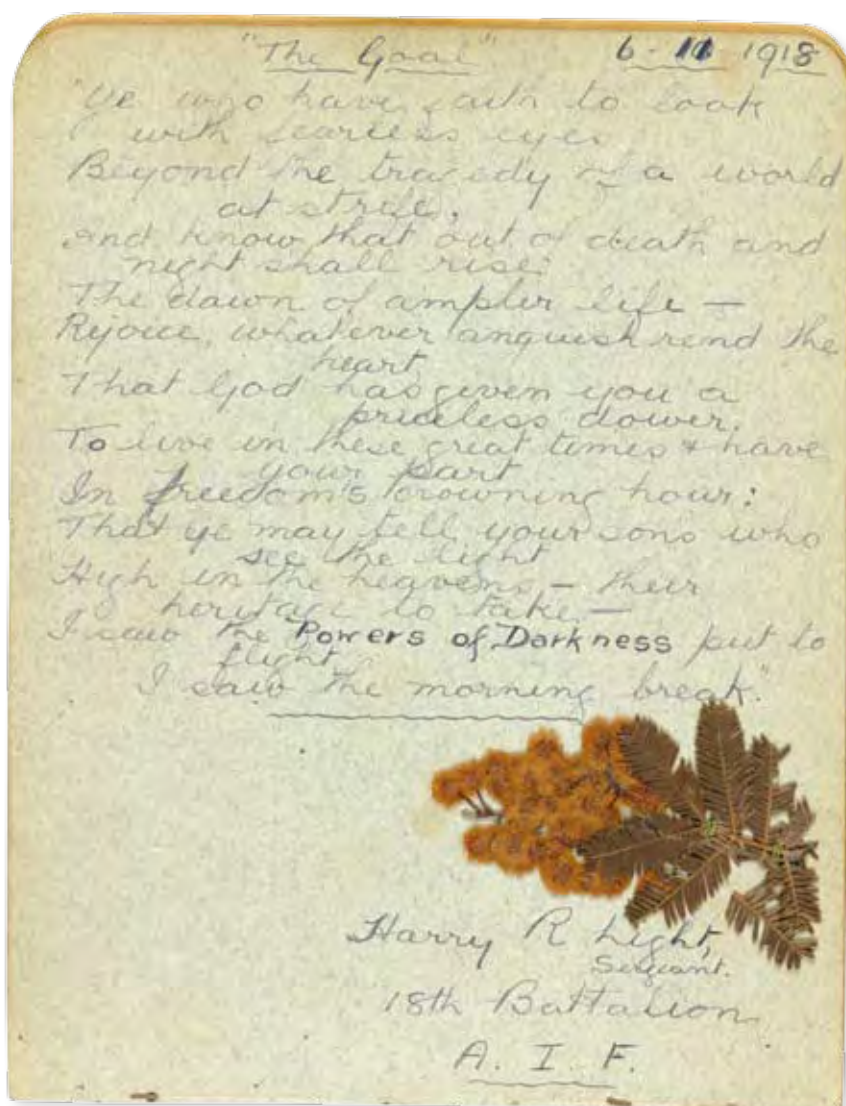 "The Goal" 6-11 1918
"Ye who have faith to look
with fearless eyes
Beyond the tragedy of a world
at strife,
And know that out of death and
night shall rise
The dawn of ampler life —
Rejoice, whatever anguish rend the
heart,
That God has given you a
priceless dower,
To live in these great times & have
your part
In freedom's crowning hour:
That ye may tell your sons who
see the light
High in the heavens — their
heritage to take —
I saw the Powers of Darkness put to
flight
I saw the morning break."
Harry R Light,
Sergeant.
18th Battalion
A. I. F.